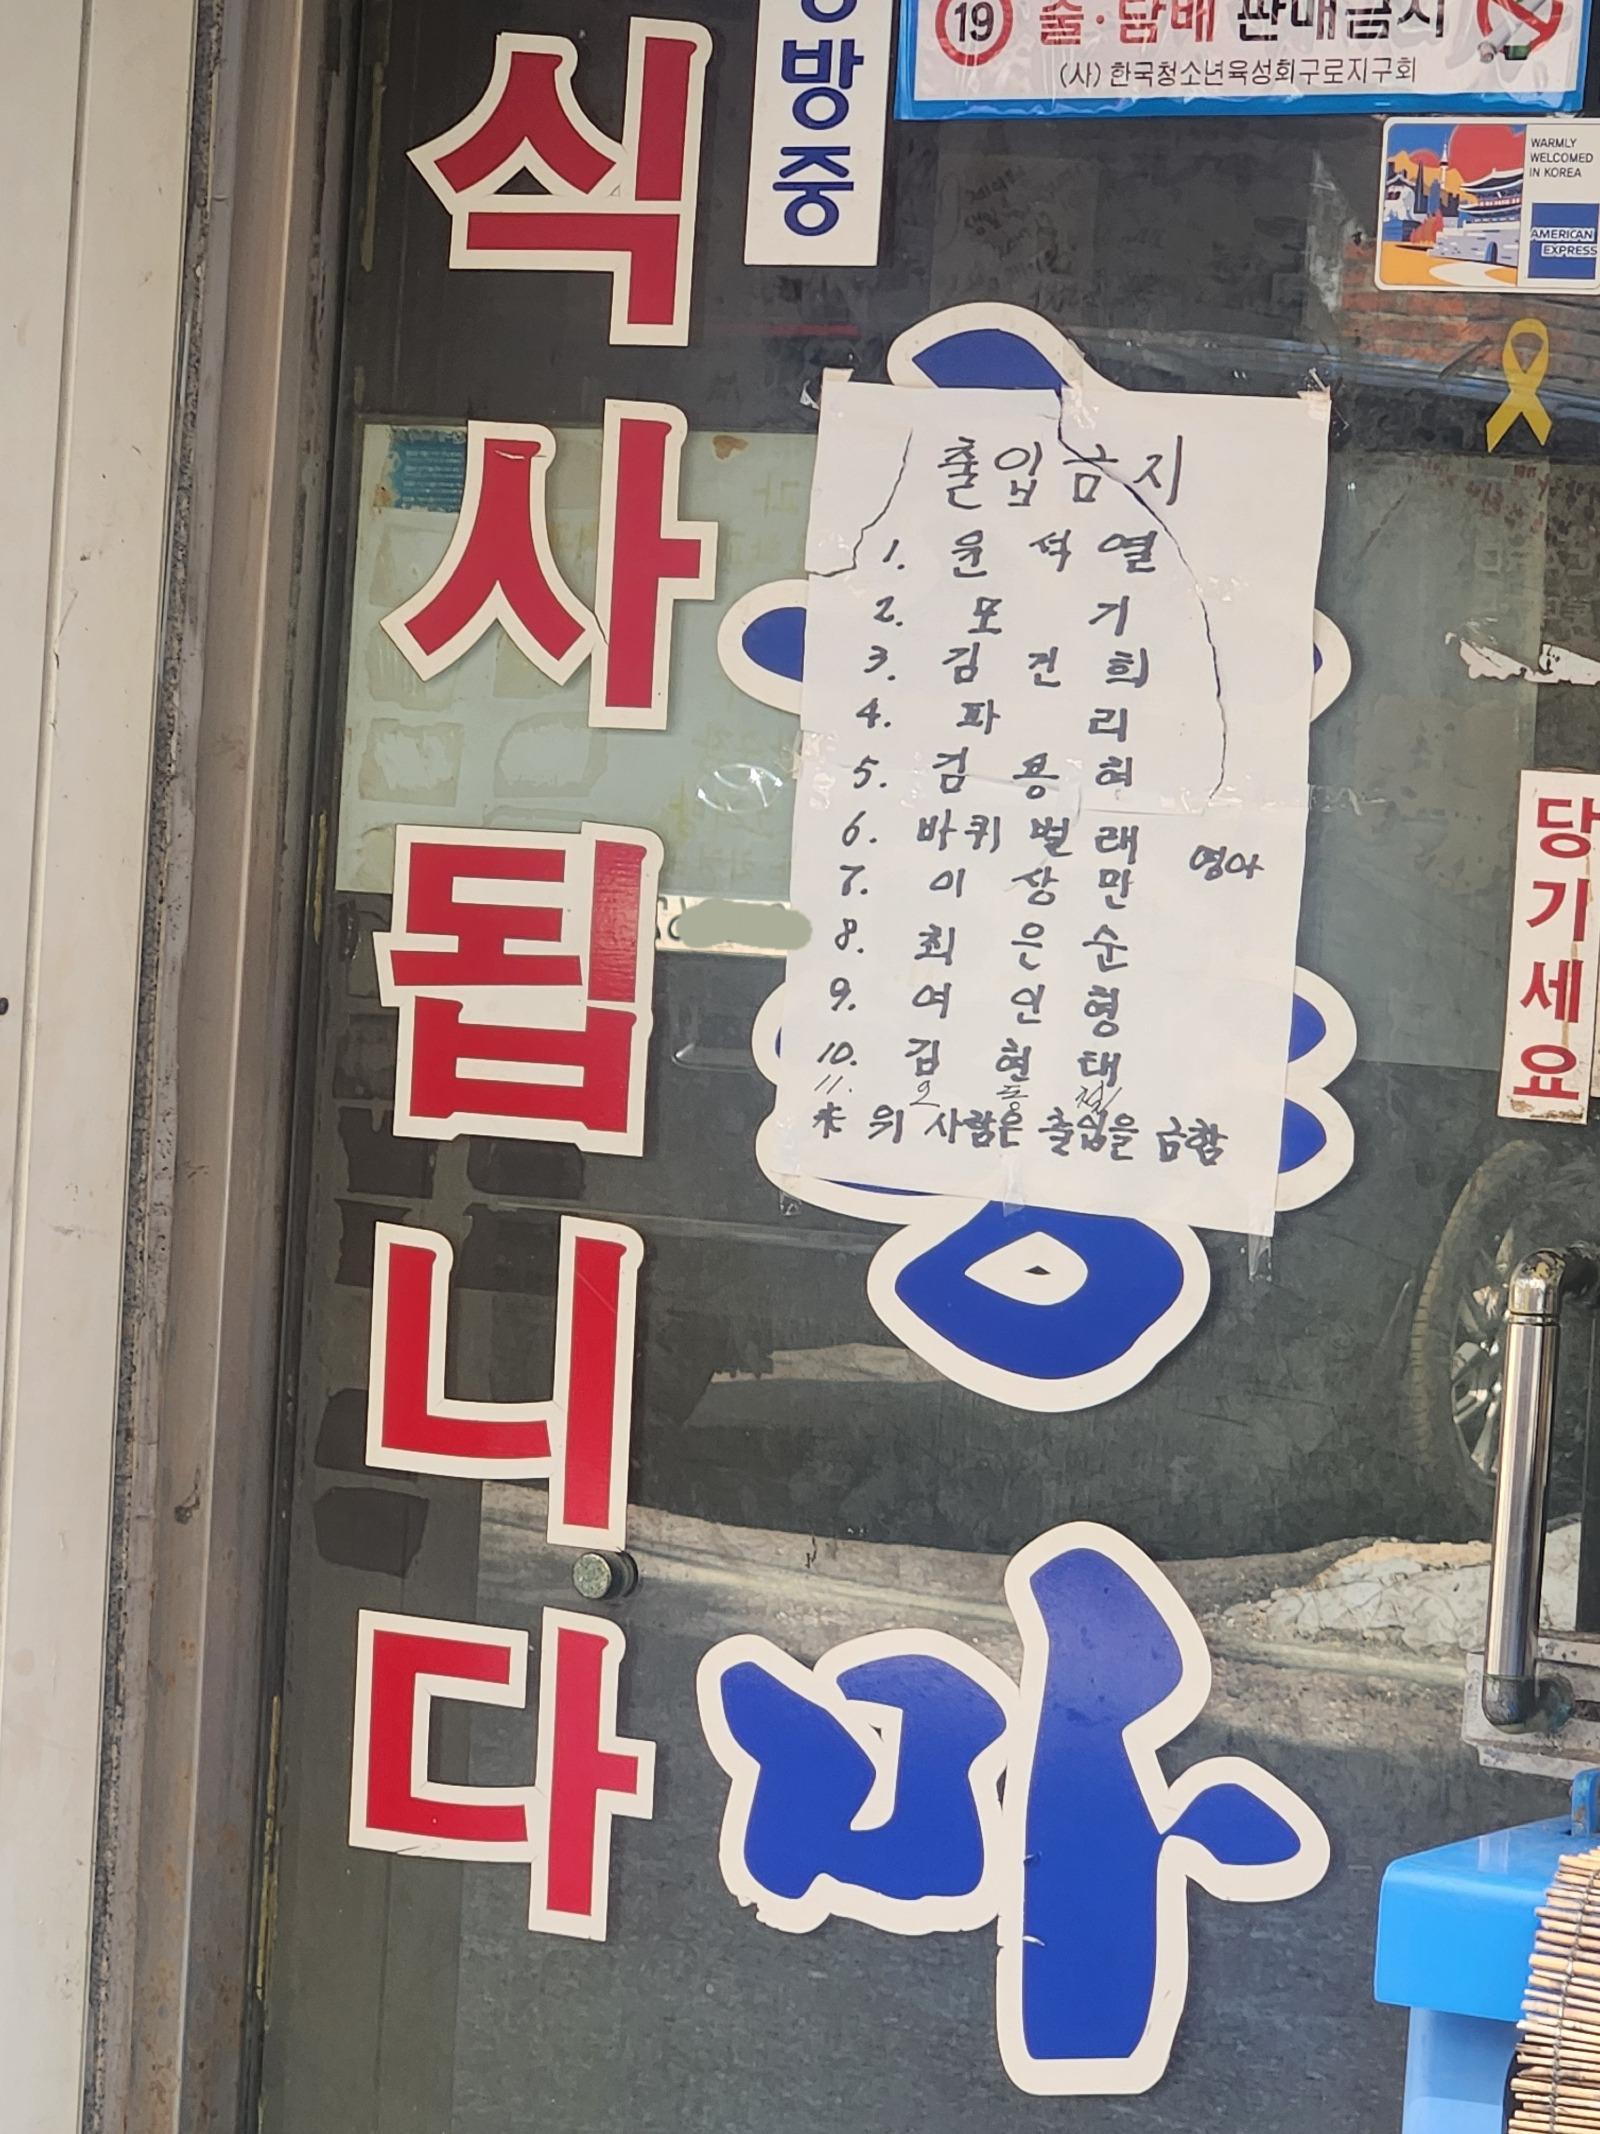 방중
19 술·담배 판매금지
(사) 한국청소년육성회구로지구회
WARMLY
WELCOMED
IN KOREA
AMERICAN
EXPRESS
식사됩니다
출입금지
1. 윤석열
2. 모기
3. 김건희
4. 파리
5. 김용현
6. 바퀴벌래
7. 이상만 영아
8. 최은순
9. 여인형
10. 김현태
11.
위 사람은 출입을 금함
당기세요
마